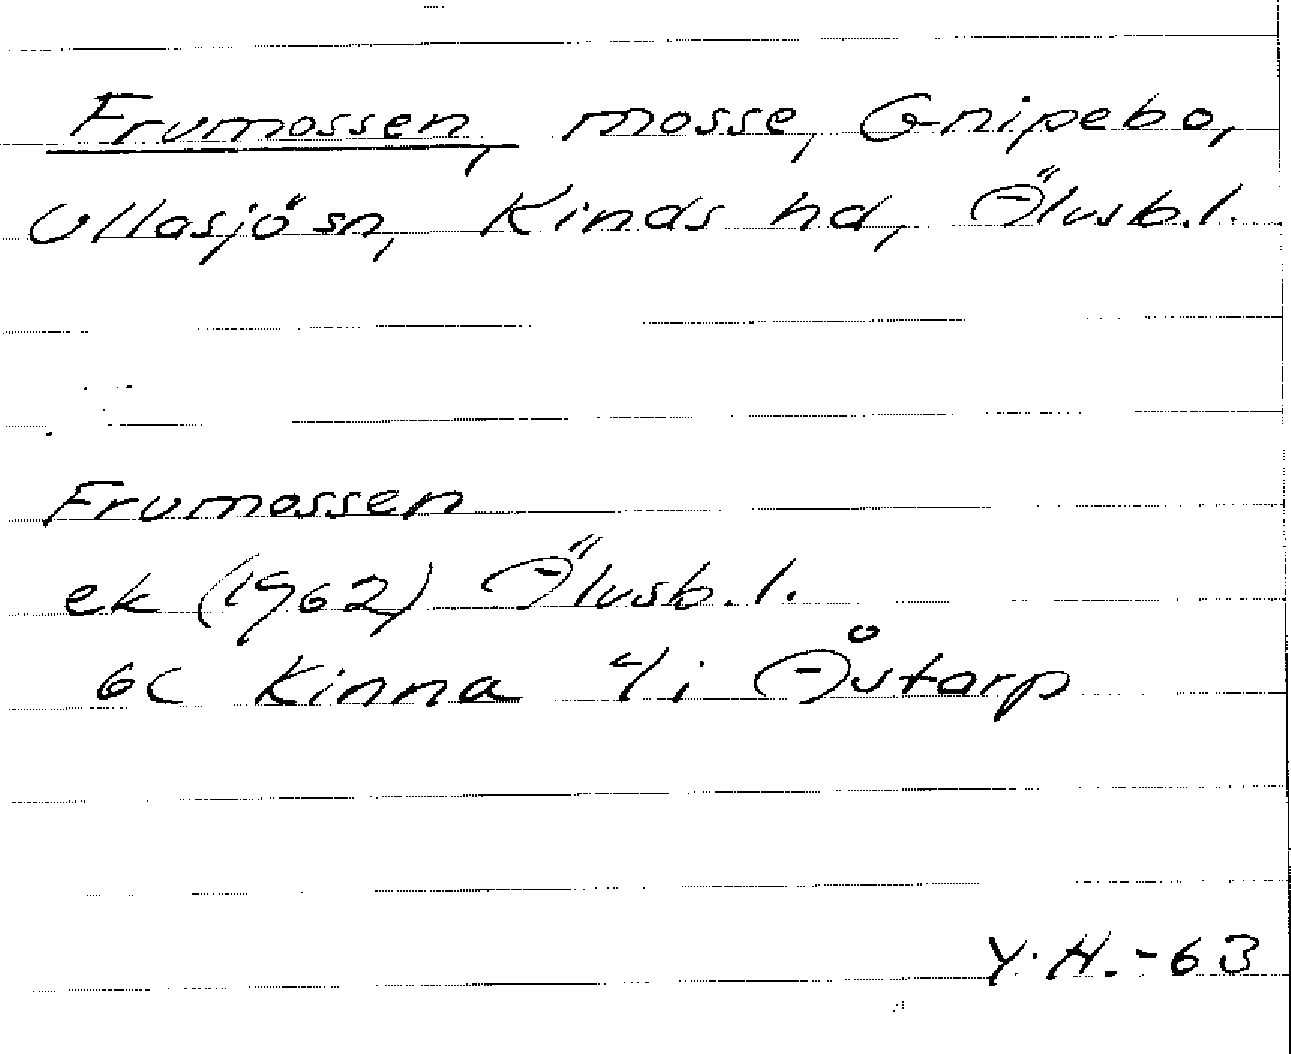 Frumossen, mosse, Gnipebo,
Ullasjö sn, Kinds hd, Älvsb.l.
Frumossen
ek (1962) Älvsb.l.
6C Kinna 4i Åstarp
Y.H.-63